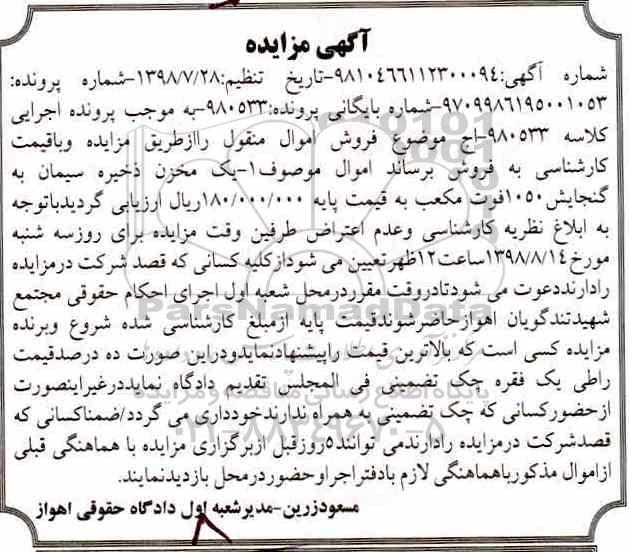 آگهی مزایده
شماره آگهی:۹۸۱۰۴۶۶۱۱۲۳۰۰۰۹۴-تاریخ تنظیم:۱۳۹۸/۷/۲۸-شماره پرونده:
۹۷۰۹۹۸۶۱۹۵۰۰۱۰۵۳-شماره بایگانی پرونده:۹۸۰۵۳۳-به موجب پرونده اجرایی
کلاسه ۹۸۰۵۳۳-اج موضوع فروش اموال منقول راازطریق مزایده وباقیمت
کارشناسی به فروش برساند اموال موصوف۱-یک مخزن ذخیره سیمان به
گنجایش۱۰۵۰فوت مکعب به قیمت پایه ۱۸۰/۰۰۰/۰۰۰ریال ارزیابی گردیدباتوجه
به ابلاغ نظریه کارشناسی وعدم اعتراض طرفین وقت مزایده برای روزسه شنبه
مورخ۱۳۹۸/۸/۱۴ساعت۱۲ظهرتعیین می شودازکلیه کسانی که قصد شرکت درمزایده
رادارنددعوت می شودتادروقت مقرردرمحل شعبه اول اجرای احکام حقوقی مجتمع
شهیدتندگویان اهوازحاضرشوندقیمت پایه ازمبلغ کارشناسی شده شروع وبرنده
مزایده کسی است که بالاترین قیمت راپیشنهادنمایدودراین صورت ده درصدقیمت
راطی یک فقره چک تضمینی فی المجلس تقدیم دادگاه نمایددرغیراینصورت
ازحضورکسانی که چک تضمینی به همراه ندارندخودداری می گردد/ضمناکسانی که
قصدشرکت درمزایده رادارندمی توانند۵روزقبل ازبرگزاری مزایده با هماهنگی قبلی
ازاموال مذکورباهماهنگی لازم بادفتراجراوحضوردرمحل بازدیدنمایند.
مسعودزرین-مدیرشعبه اول دادگاه حقوقی اهواز
ParsNamadData
پایگاه اطلاع رسانی مناقصه و مزایده
۰۲۱-۸۸۳۴۹۶۷۰-۵